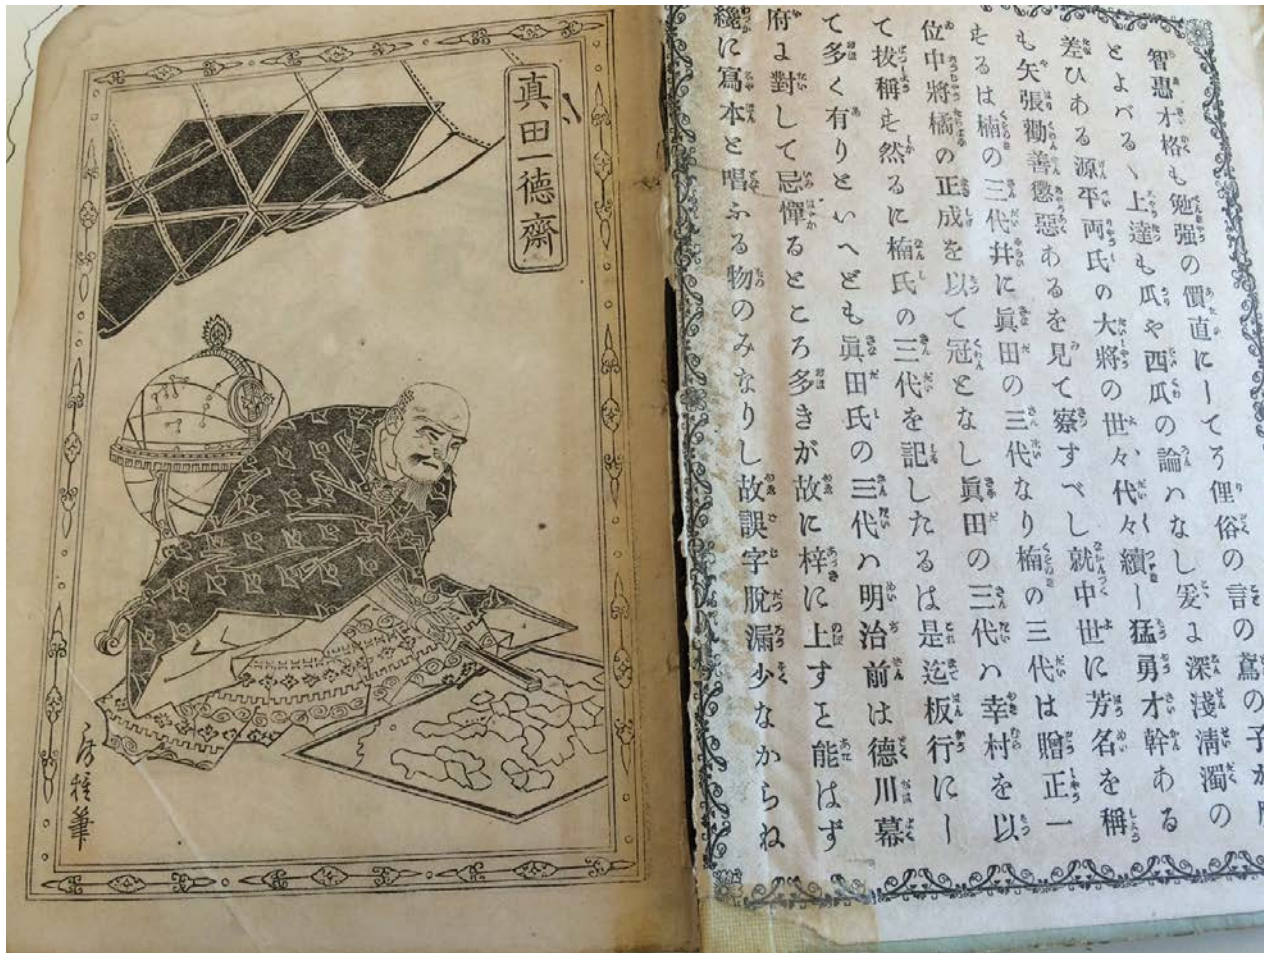 智惠才格も勉強の價直にしてろ俚俗の言の鳶の子が
とよバるゝ上達も瓜や西瓜の論ハなし爰よ深淺淸濁の
差ひある源平両氏の大將の世々代々續し猛勇才幹ある
も矢張勸善懲惡あるを見て察すべし就中世に芳名を稱
せるは楠の三代并に眞田の三代なり楠の三代は贈正一
位中將橘の正成を以て冠となし眞田の三代ハ幸村を以
て拔稱せ然るに楠氏の三代を記したるは是迄板行にし
て多く有りといへども眞田氏の三代ハ明治前は德川幕
府よ對して忌憚るところ多きが故に梓に上すこと能はず
纔に寫本と唱ふる物のみなりし故誤字脫漏少なからね
真田一德齋
房種筆